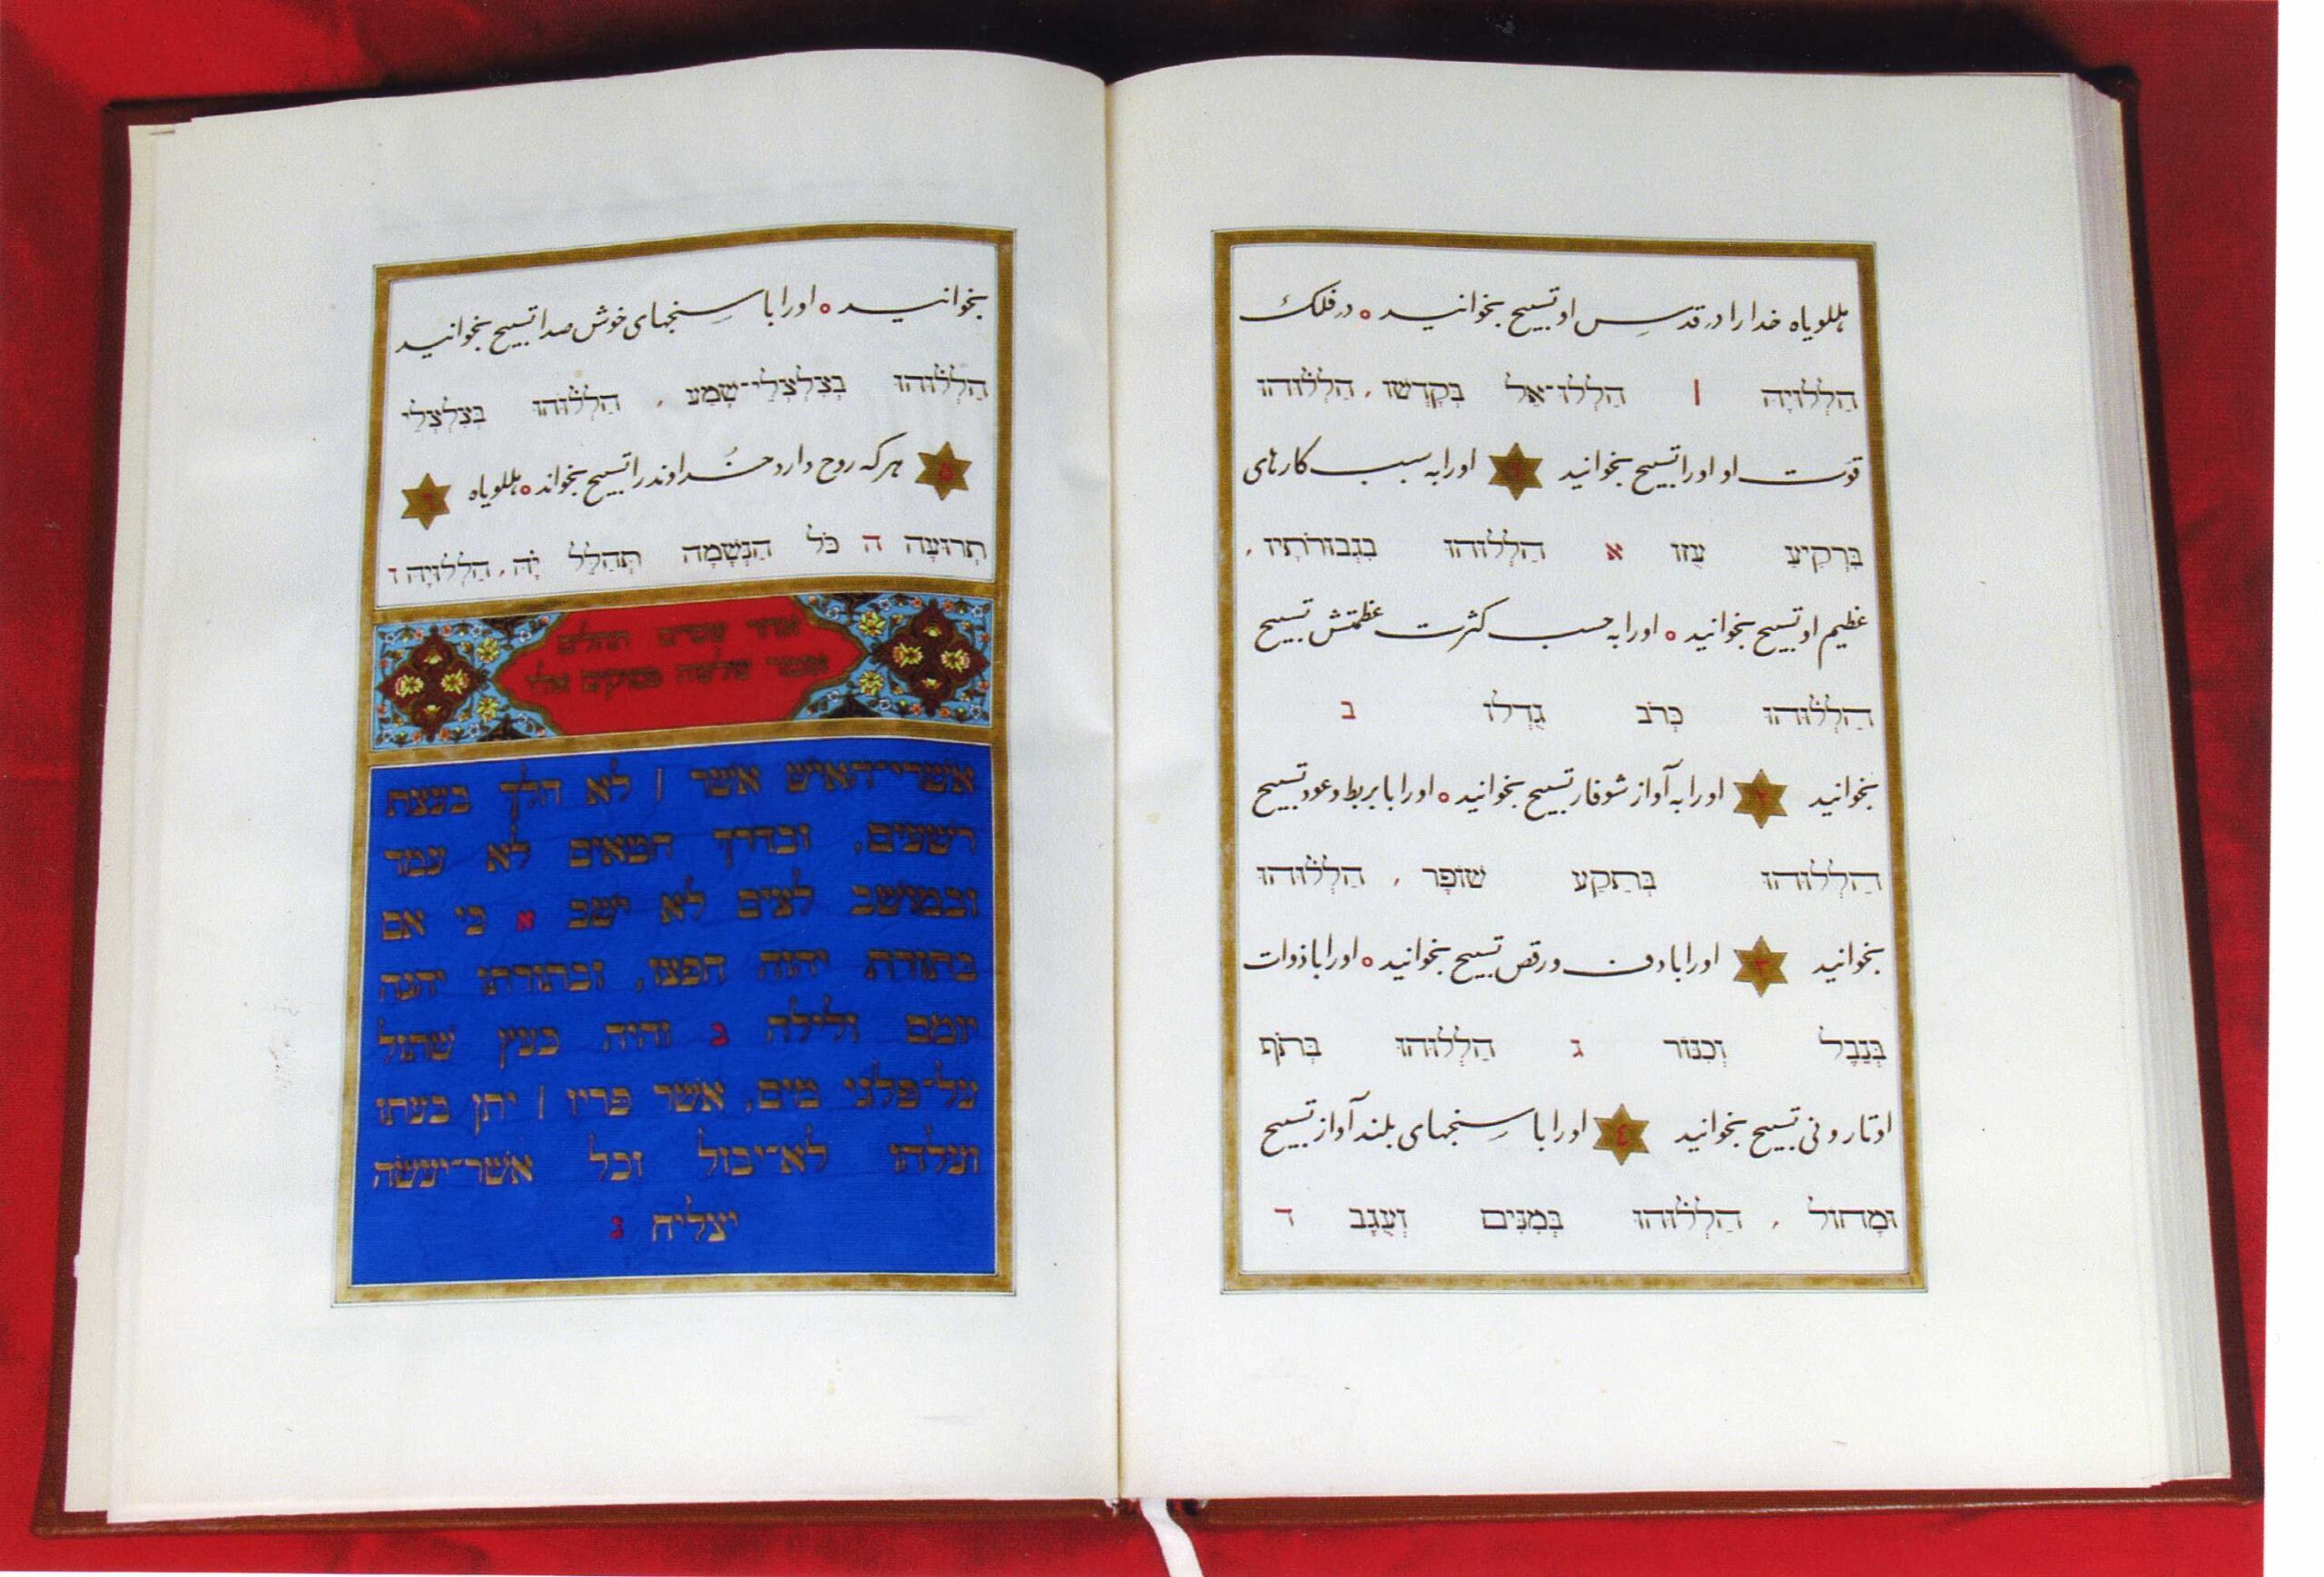 هللویاه خدا را در قدس او تسبیح بخوانید ○ در فلک
הַלְלוּיָהּ ׀ הַלְלוּ־אֵל בְּקָדְשׁוֹ, הַלְלוּהוּ
قوت او او را تسبیح بخوانید ۱ او را به سبب کارهای
בִּרְקִיעַ עֻזּוֹ א הַלְלוּהוּ בִגְבוּרֹתָיו,
عظیم او تسبیح بخوانید ○ او را به حسب کثرت عظمتش تسبیح
הַלְלוּהוּ כְּרֹב גֻּדְלוֹ ב
بخوانید ۲ او را به آواز شوفار تسبیح بخوانید ○ او را با بربط و عود تسبیح
הַלְלוּהוּ בְּתֵקַע שׁוֹפָר, הַלְלוּהוּ
بخوانید ۳ او را با دف و رقص تسبیح بخوانید ○ او را با ذوات
בְּנֵבֶל וְכִנּוֹר ג הַלְלוּהוּ בְּתֹף
اوتار و نی تسبیح بخوانید ٤ او را با سنجهای بلند آواز تسبیح
וּמָחוֹל, הַלְלוּהוּ בְּמִנִּים וְעֻגָב ד
بخوانید ○ او را با سنجهای خوش صدا تسبیح بخوانید
הַלְלוּהוּ בְצִלְצְלֵי־שָׁמַע, הַלְלוּהוּ בְּצִלְצְלֵי
۵ هر که روح دارد خداوند را تسبیح بخواند ○ هللویاه ۶
תְרוּעָה ה כֹּל הַנְּשָׁמָה תְּהַלֵּל יָהּ, הַלְלוּיָהּ ו
אחר שסיים תהלים
יאמר שלשה פסוקים אלו
אשרי־האיש אשר ׀ לא הלך בעצת
רשעים, ובדרך חטאים לא עמד
ובמושב לצים לא ישב א כי אם
בתורת יהוה חפצו, ובתורתו יהגה
יומם ולילה ב והיה כעץ שתול
על־פלגי מים, אשר פריו ׀ יתן בעתו
ועלהו לא־יבול וכל אשר־יעשה
יצליח ג